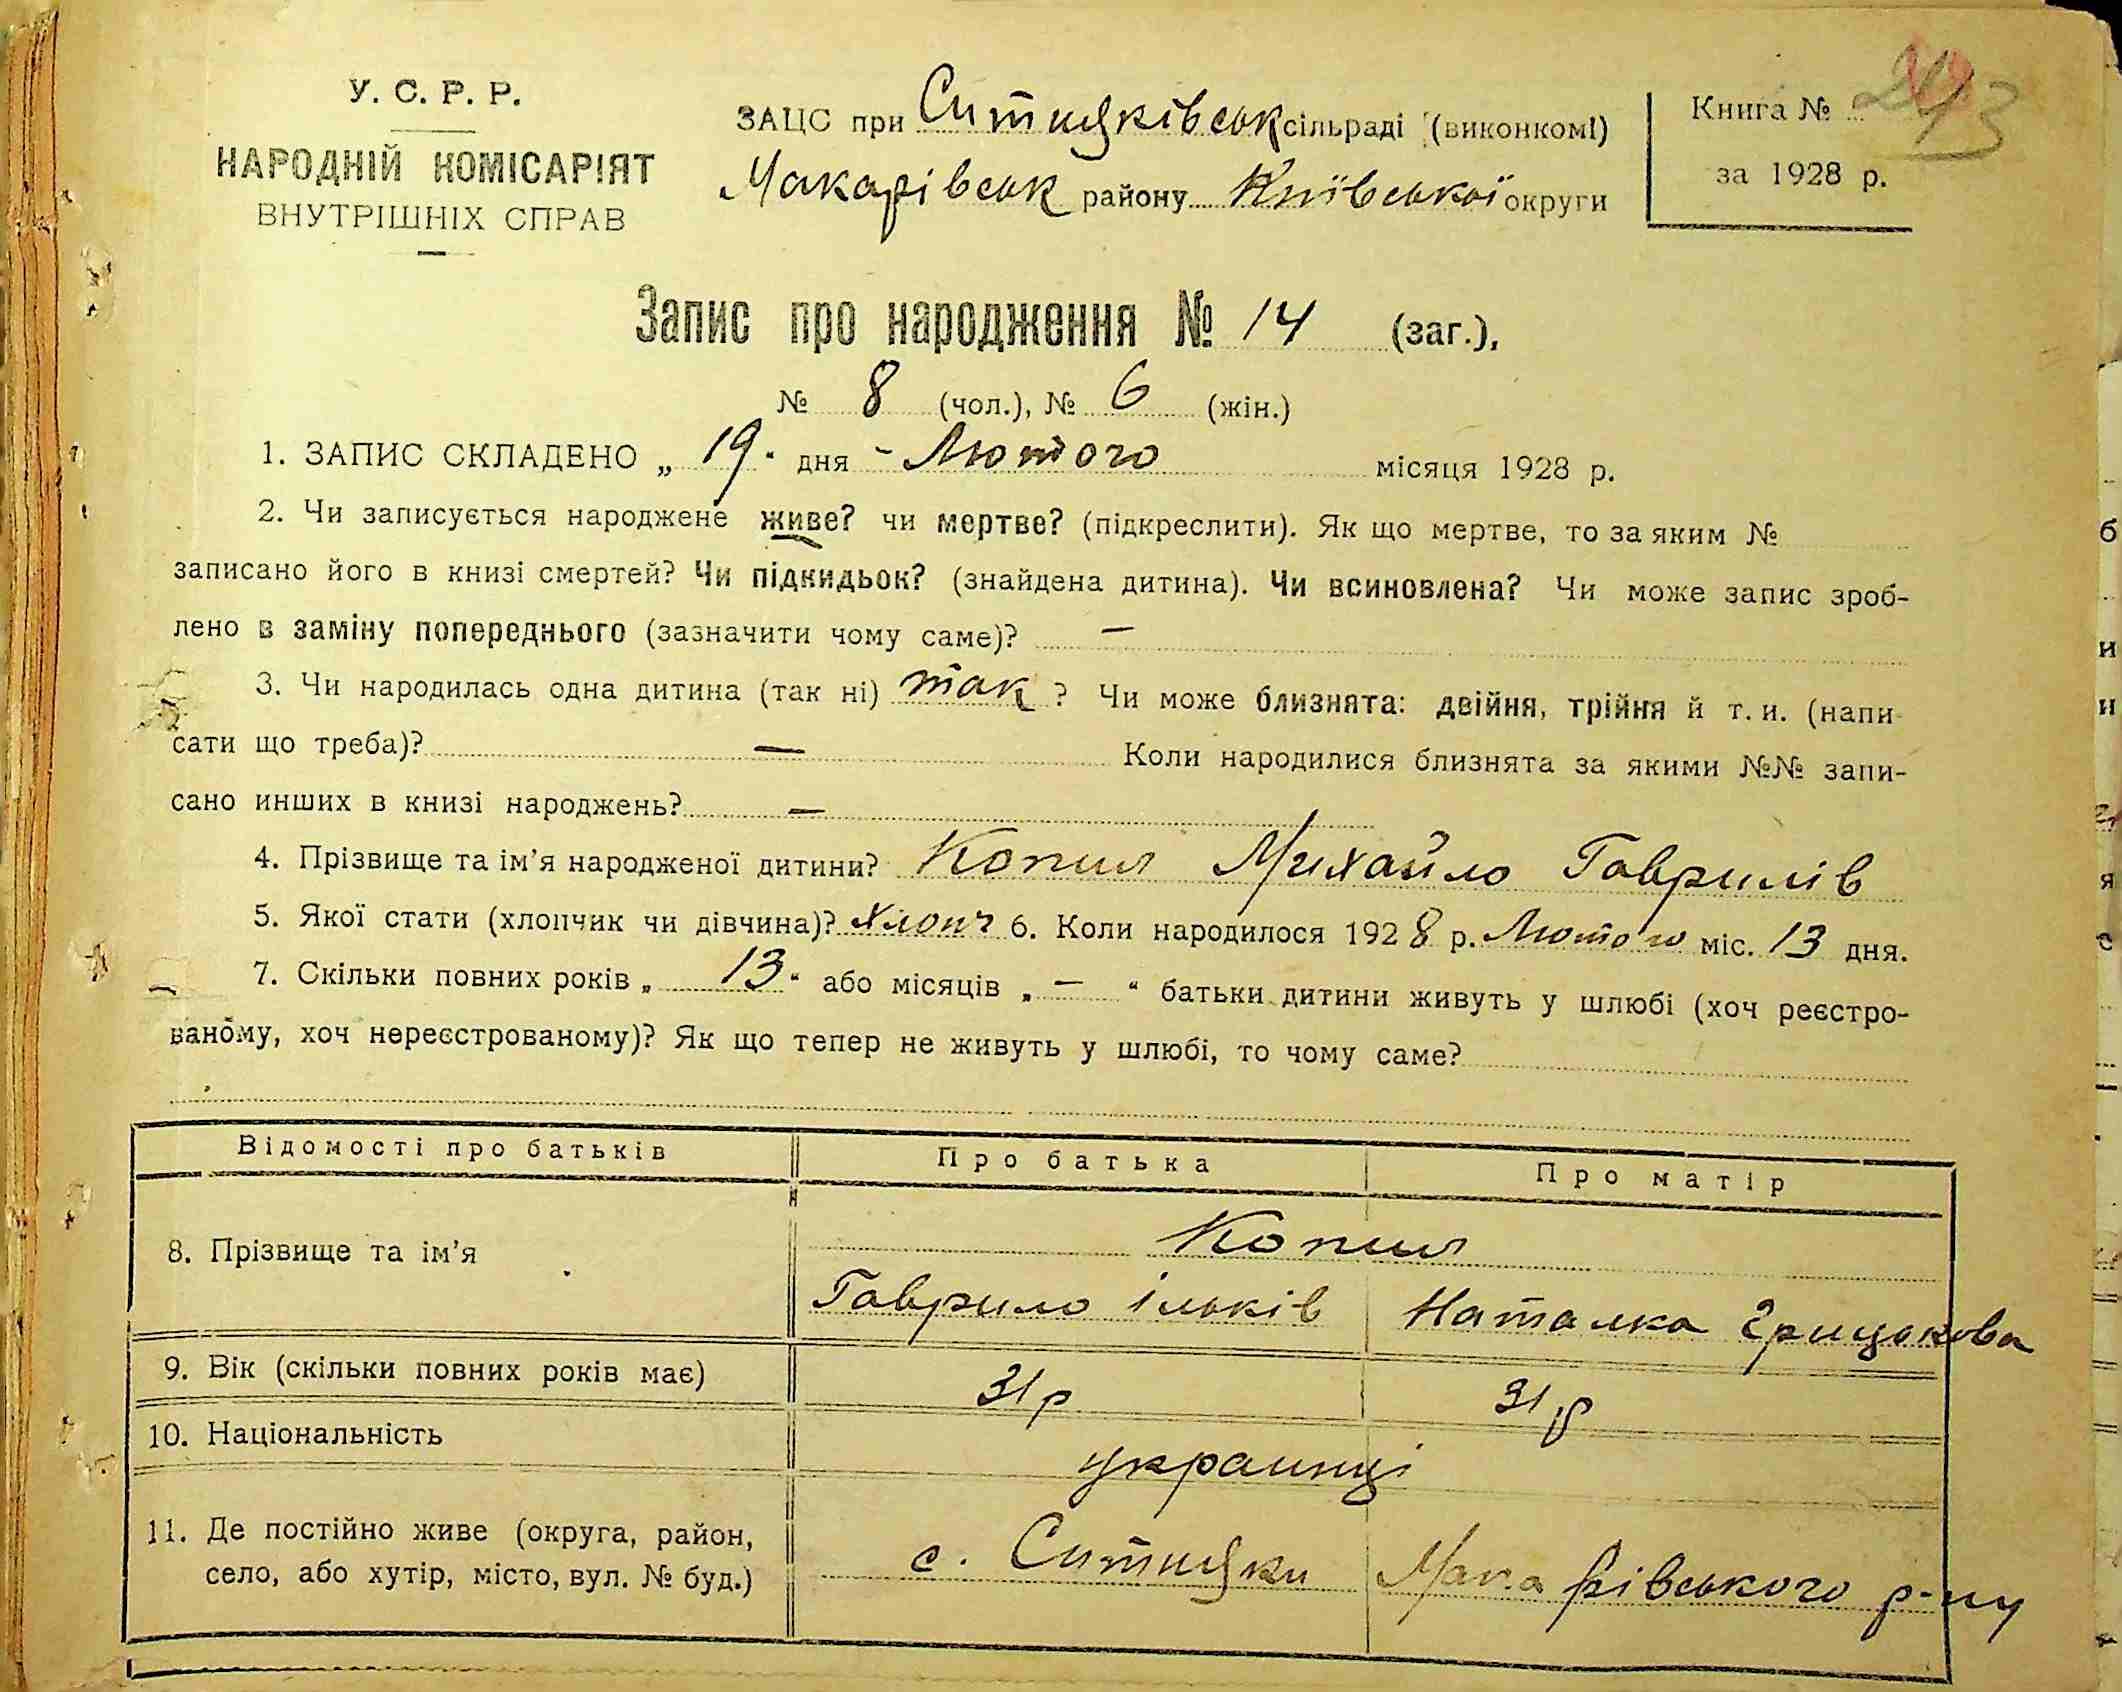 У. С. Р. Р.
НАРОДНІЙ КОМІСАРІЯТ
ВНУТРІШНІХ СПРАВ
ЗАЦС при Ситняківськ сільраді (виконкомі)
Макарівськ району Київської округи
Книга №
за 1928 р.
243
Запис про народження № 14 (заг.),
№ 8 (чол.), № 6 (жін.)
1. ЗАПИС СКЛАДЕНО „ 19 " дня - Лютого місяця 1928 р.
2. Чи записується народжене живе? чи мертве? (підкреслити). Як що мертве, то за яким №
записано його в книзі смертей? Чи підкидьок? (знайдена дитина). Чи всиновлена? Чи може запис зроб-
лено в заміну попереднього (зазначити чому саме)? —
3. Чи народилась одна дитина (так ні) так ? Чи може близнята: двійня, трійня й т. и. (напи-
сати що треба)? — Коли народилися близнята за якими №№ запи-
сано инших в книзі народжень? —
4. Прізвище та ім'я народженої дитини? Копил Михайло Гаврилів
5. Якої стати (хлопчик чи дівчина)? хлопч 6. Коли народилося 1928 р. Лютого міс. 13 дня.
7. Скільки повних років „ 13 " або місяців „ — " батьки дитини живуть у шлюбі (хоч реєстро-
ваному, хоч нереєстрованому)? Як що тепер не живуть у шлюбі, то чому саме?
Відомості про батьків Про батька Про матір
8. Прізвище та ім'я Копил
Гаврило Ільків Наталка Грицькова
9. Вік (скільки повних років має) 31 р 31 р
10. Національність українці
11. Де постійно живе (округа, район,
село, або хутір, місто, вул. № буд.) с. Ситняки Макарівського р-ну